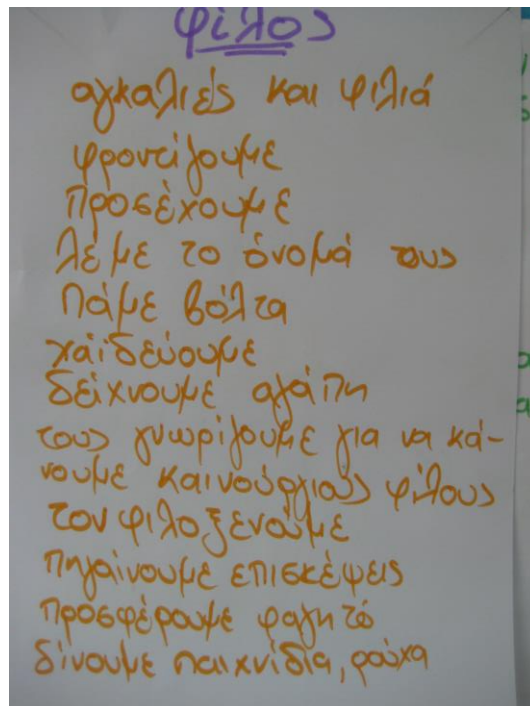 φίλος
αγκαλιές και φιλιά
φροντίζουμε
προσέχουμε
λέμε το όνομά τους
πάμε βόλτα
χαϊδεύουμε
δείχνουμε αγάπη
τους γνωρίζουμε για να κά-
νουμε καινούργιους φίλους
τον φιλοξενούμε
πηγαίνουμε επισκέψεις
προσφέρουμε φαγητό
δίνουμε παιχνίδια, ρούχα